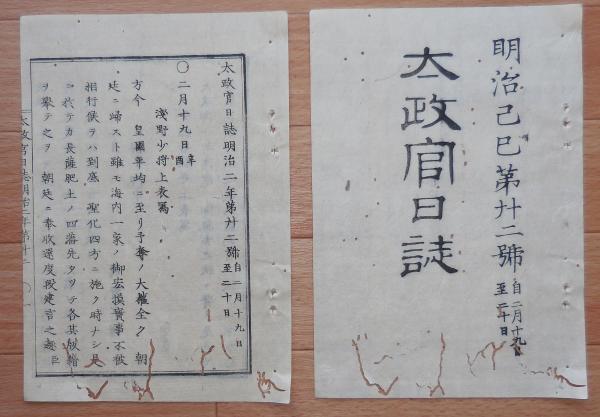 明治己巳第廿二號 自二月十九日 至二十日
太政官日誌
太政官日誌明治二年第廿二號 自二月十九日 至二十日
〇二月十九日 辛酉
淺野少將上表寫
方今 皇國平均ニ至リ予奪ノ大權全ク 朝
廷ニ歸スト雖モ海内一家ノ御宏摸實事不被
相行候テハ到底 聖化四方ニ施ク時ナシ是
ニ於テカ長薩肥土ノ四藩先タツテ各其版籍
ヲ擧テ之ヲ 朝廷ニ奉收還度段建言之趣臣
太政官日誌明治二年第廿二 〇一